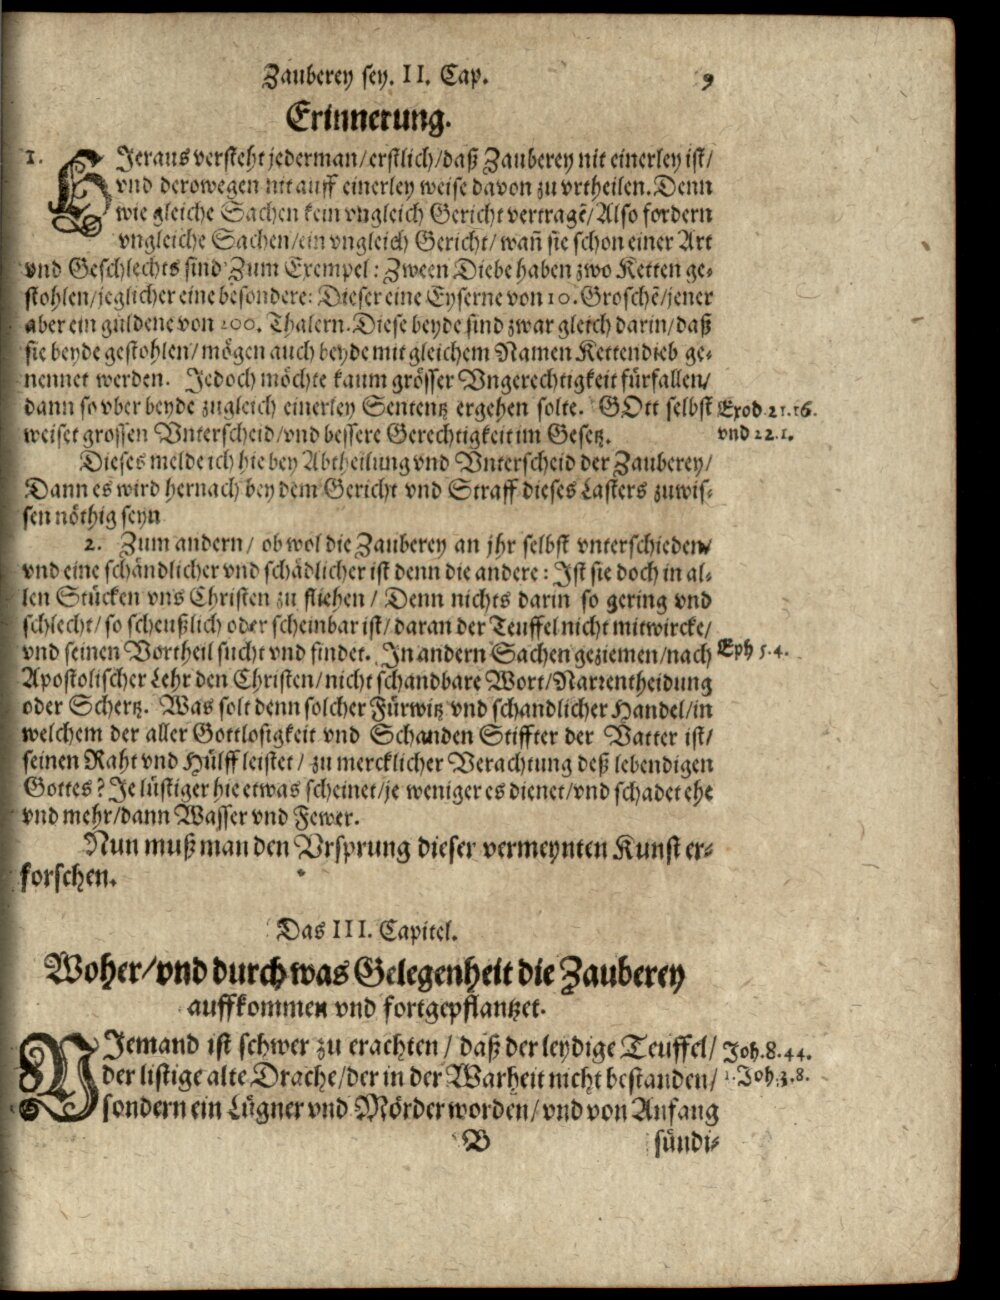 Zauberey sey. II. Cap. 9
Erinnerung.
1. HJeraus versteht jederman/erstlich/daß Zauberey nit einerley ist/
vnd derowegen nit auff einerley weise davon zu vrtheilen. Denn
wie gleiche Sachen kein vngleich Gericht vertragẽ/Also fordern
vngleiche Sachen/ein vngleich Gericht/wañ sie schon einer Art
vnd Geschlechts sind Zum Exempel: Zween Diebe haben zwo Ketten ge-
stohlen/jeglicher eine besondere: Dieser eine Eyserne von 10. Groschẽ/jener
aber ein güldene von 100. Thalern. Diese beyde sind zwar gleich darin/daß
sie beyde gestohlen/mögen auch beyde mit gleichem Namen Kettendieb ge-
nennet werden. Jedoch möchte kaum grösser Vngerechtigkeit fürfallen/
dann so vber beyde zugleich einerley Sententz ergehen solte. GOtt selbst Exod. 21.16.
weiset grossen Vnterscheid/vnd bessere Gerechtigkeit im Gesetz. vnd 22.1.
Dieses melde ich hie bey Abtheilung vnd Vnterscheid der Zauberey/
Dann es wird hernach bey dem Gericht vnd Straff dieses Lasters zuwis-
sen nöthig seyn
2. Zum andern/ ob wol die Zauberey an jhr selbst vnterschieden/
vnd eine schändlicher vnd schädlicher ist denn die andere: Jst sie doch in al-
len Stücken vns Christen zu fliehen/ Denn nichts darin so gering vnd
schlecht/ so scheußlich oder scheinbar ist/ daran der Teuffel nicht mitwircke/
vnd seinen Vortheil sucht vnd findet. Jn andern Sachen geziemen/nach Eph 5.4.
Apostolischer Lehr den Christen/nicht schandbare Wort/Narrentheidung
oder Schertz. Was solt denn solcher Fürwitz vnd schandlicher Handel/in
welchem der aller Gottlosigkeit vnd Schanden Stiffter der Vatter ist/
seinen Raht vnd Hülff leistet/ zu mercklicher Verachtung deß lebendigen
Gottes? Je lüstiger hie etwas scheinet/je weniger es dienet/vnd schadet ehe
vnd mehr/dann Wasser vnd Fewer.
Nun muß man den Vrsprung dieser vermeynten Kunst er-
forschen.
Das III. Capitel.
Woher/vnd durch was Gelegenheit die Zauberey
auffkommen vnd fortgepflantzet.
NJemand ist schwer zu erachten/ daß der leydige Teuffel/ Joh. 8.44.
der listige alte Drache/der in der Warheit nicht bestanden/ 1. Joh. 3.8.
sondern ein Lügner vnd Mörder worden/vnd von Anfang
B sündi-